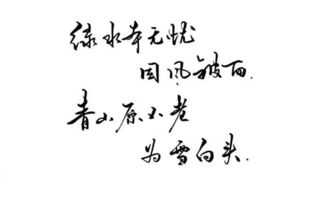 绿水本无忧
因风皱面.
青山原不老
为雪白头.